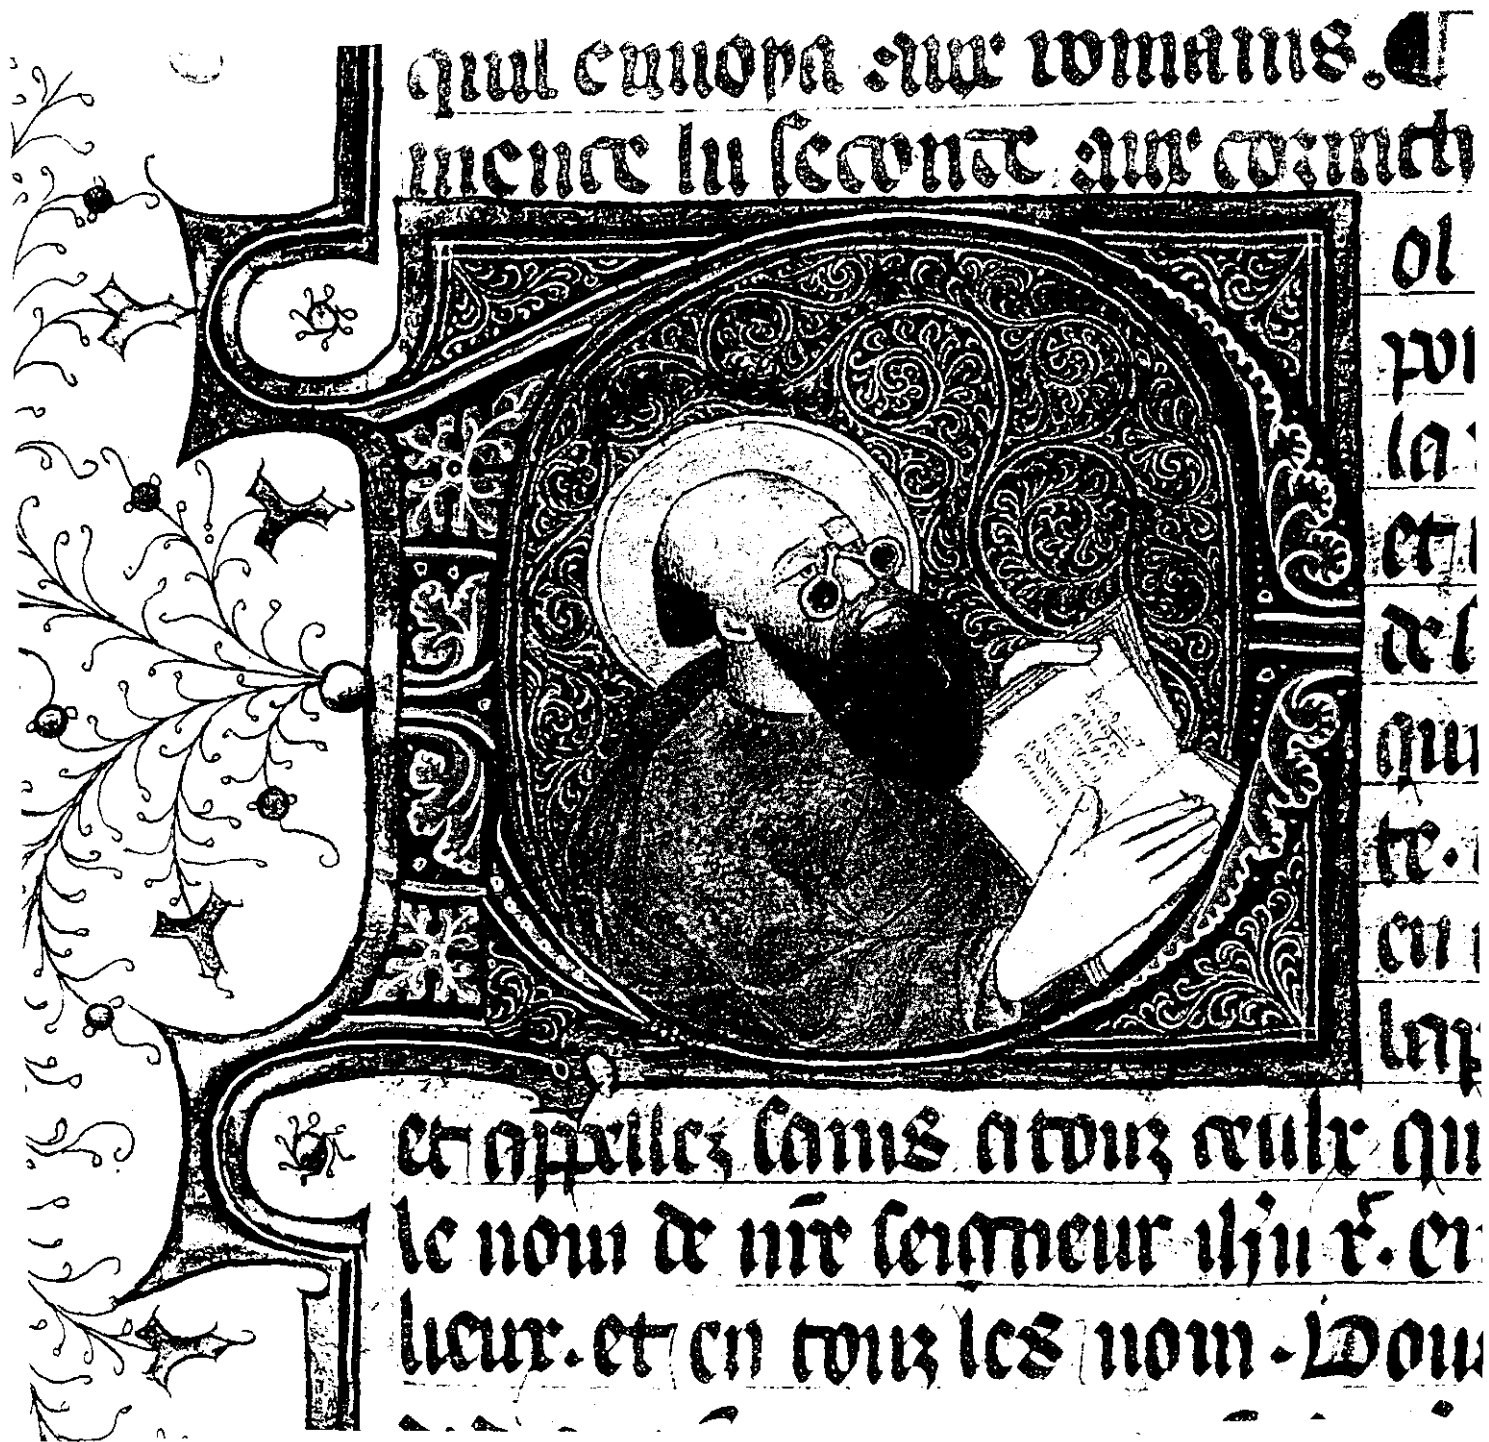 quil enuoya aux romains. ¶
mence lu seconde aux corinth
ol
poi
la
et
del
qui
te.
en
lap
et appellez sains a touz ceulx qu
le nom de nr̄e seigneur ihū x̄. en
lieux. et en touz les nom. Dou